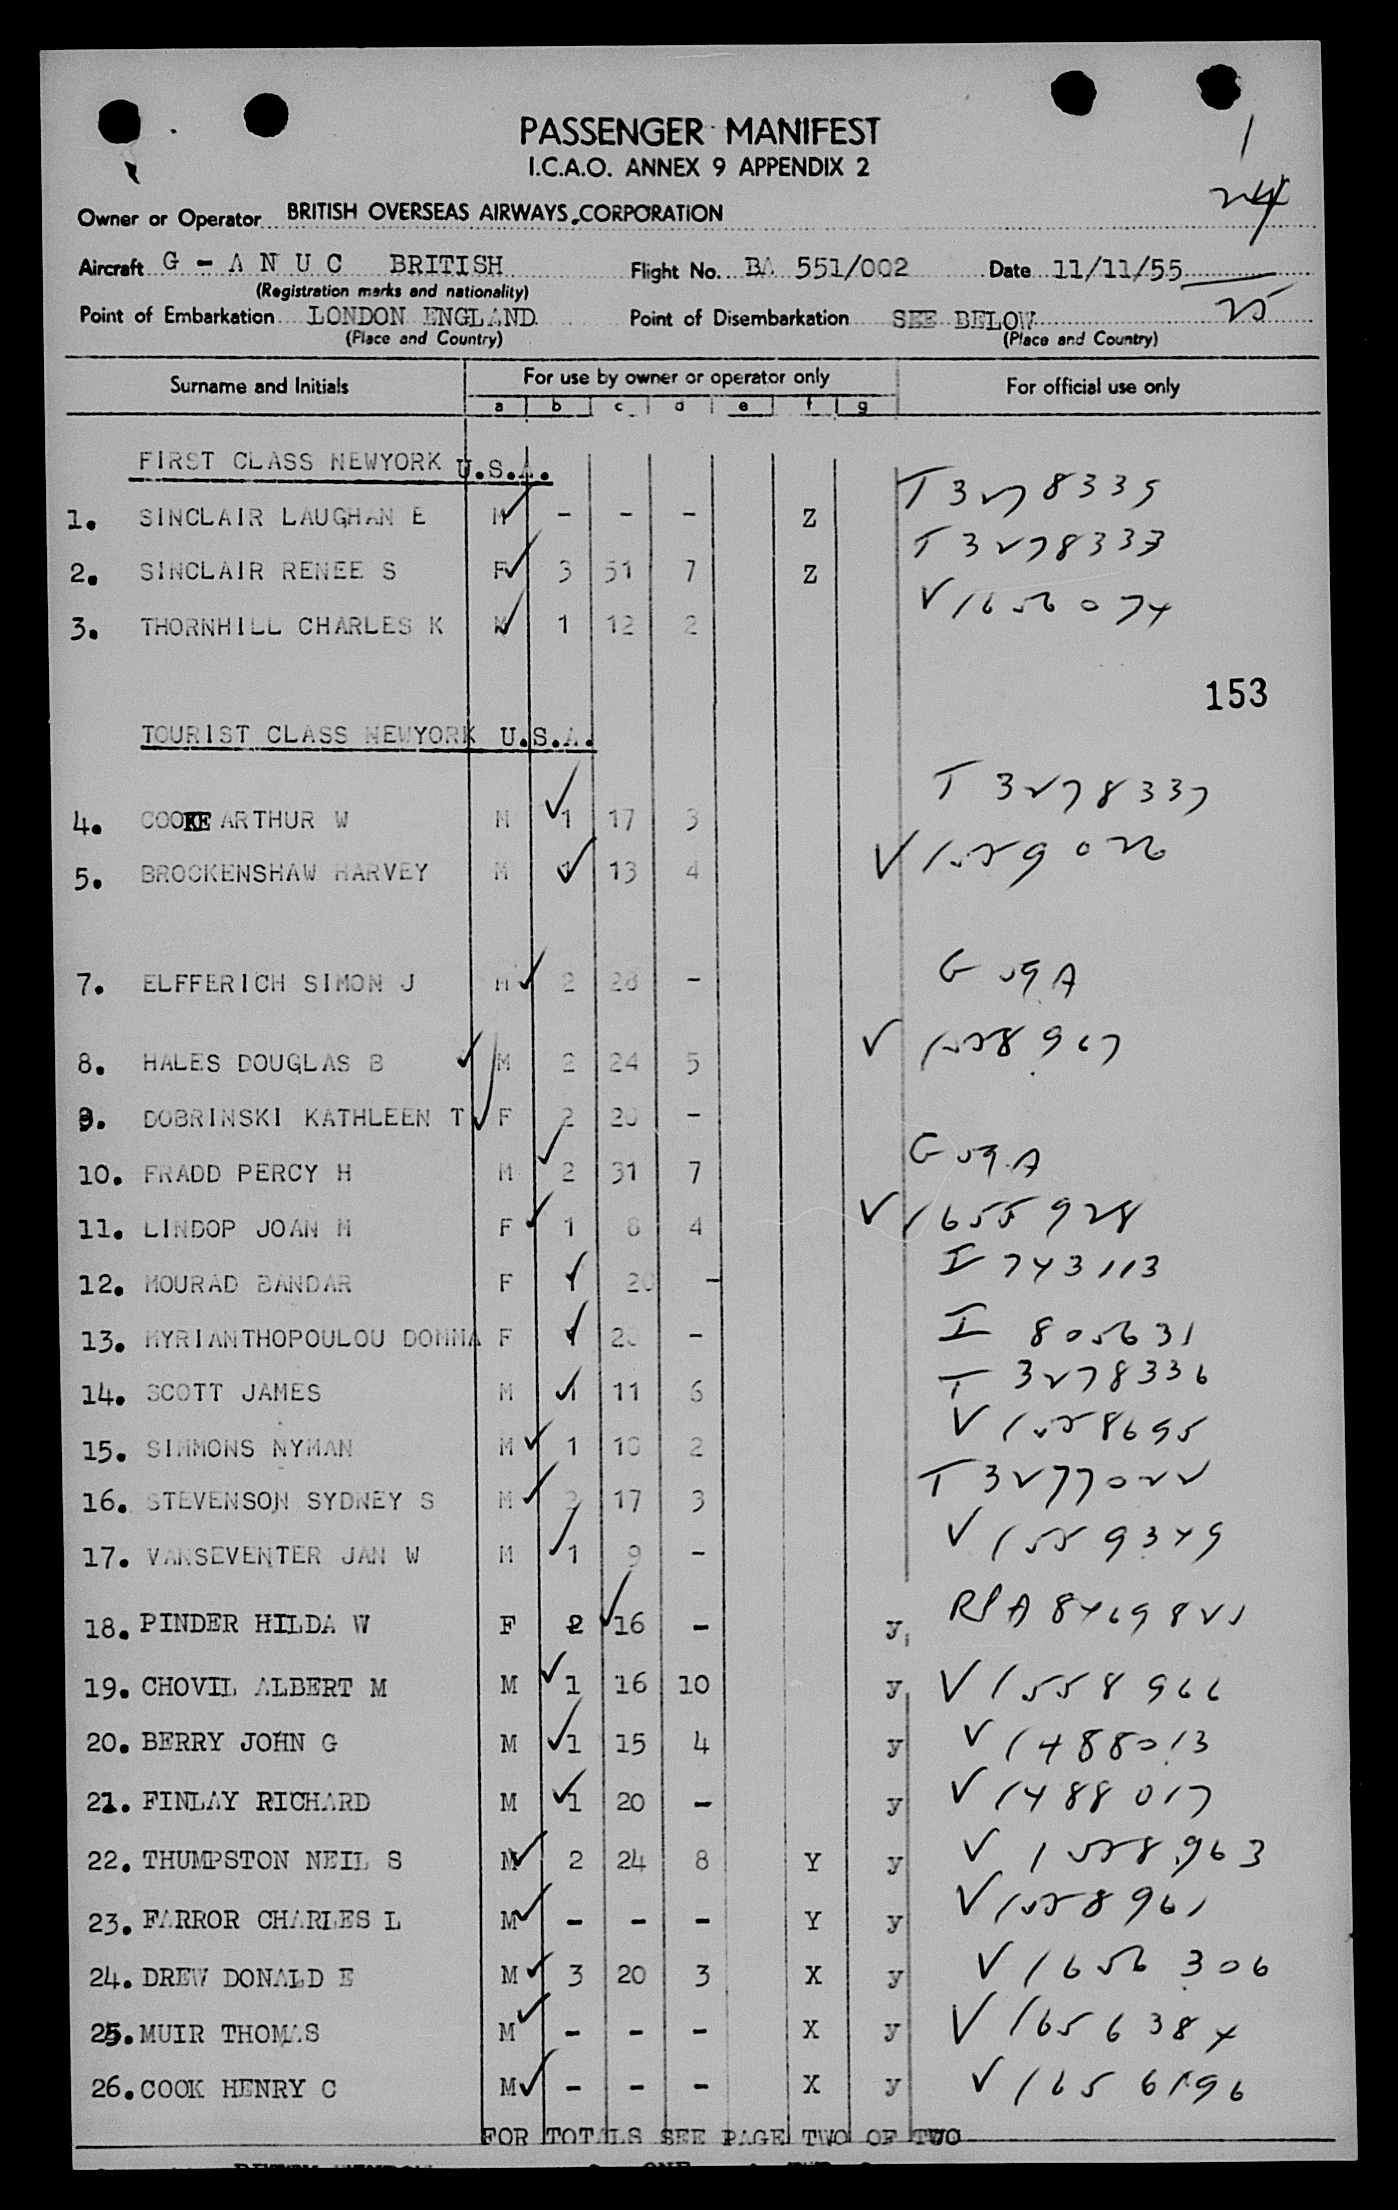 PASSENGER MANIFEST
I.C.A.O. ANNEX 9 APPENDIX 2
1
24
25
Owner or Operator BRITISH OVERSEAS AIRWAYS CORPORATION
Aircraft G - A N U C BRITISH Flight No. BA 551/002 Date 11/11/55
(Registration marks and nationality)
Point of Embarkation LONDON ENGLAND Point of Disembarkation SEE BELOW
(Place and Country) (Place and Country)
Surname and Initials For use by owner or operator only For official use only
a b c d e f g
FIRST CLASS NEWYORK U.S.A.
1. SINCLAIR LAUGHAN E M - - - Z T 3278335
2. SINCLAIR RENEE S F 3 51 7 Z T 3278333
3. THORNHILL CHARLES K M 1 12 2 V 1656074
153
TOURIST CLASS NEWYORK U.S.A.
4. COOKE ARTHUR W M 1 17 3 T 3278337
5. BROCKENSHAW HARVEY M 1 13 4 V 1559026
7. ELFFERICH SIMON J M 2 28 - G 59 A
8. HALES DOUGLAS B M 2 24 5 V 1558967
9. DOBRINSKI KATHLEEN T F 2 20 -
10. FRADD PERCY H M 2 31 7 G 59 A
11. LINDOP JOAN M F 1 8 4 V 1655928
12. MOURAD BANDAR F 1 20 - I 743113
13. MYRIANTHOPOULOU DOMNA F 1 20 - I 805631
14. SCOTT JAMES M 1 11 6 T 3278336
15. SIMMONS NYMAN M 1 18 2 V 1558695
16. STEVENSON SYDNEY S M 2 17 3 T 3277022
17. VANSEVENTER JAN W M 1 9 - V 1559349
18. PINDER HILDA W F 2 16 - y RPA 8469821
19. CHOVIL ALBERT M M 1 16 10 y V 1558966
20. BERRY JOHN G M 1 15 4 y V 1488013
21. FINLAY RICHARD M 1 20 - y V 1488017
22. THUMPSTON NEIL S M 2 24 8 Y y V 1558963
23. FARROR CHARLES L M - - - Y y V 1558961
24. DREW DONALD E M 3 20 3 X y V 1656306
25. MUIR THOMAS M - - - X y V 1656384
26. COOK HENRY C M - - - X y V 1656196
FOR TOTALS SEE PAGE TWO OF TWO